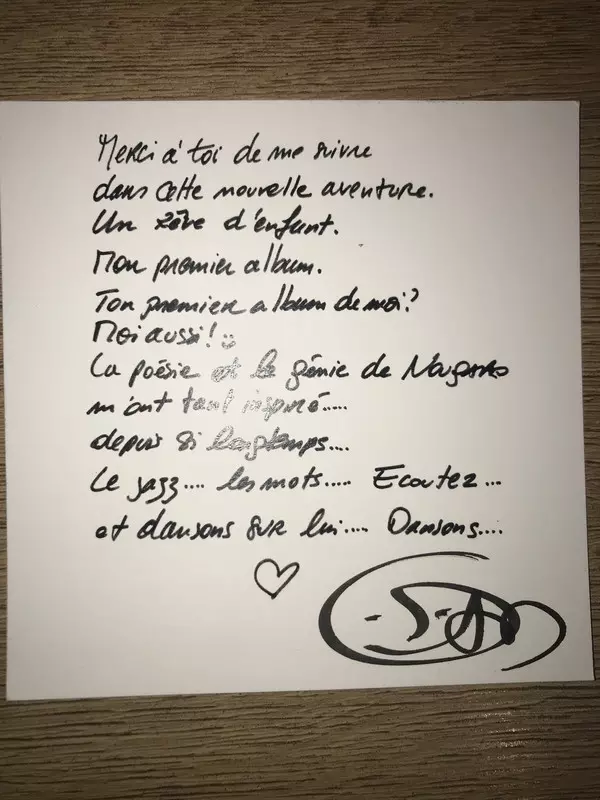 Merci à toi de me suivre
dans cette nouvelle aventure.
Un rêve d'enfant.
Mon premier album.
Ton premier album de moi?
Moi aussi! :)
La poésie et le génie de Nougaro
m'ont tant inspiré....
depuis si longtemps....
Le jazz.... les mots..... Ecoutez...
et dansons sur lui.... Dansons....